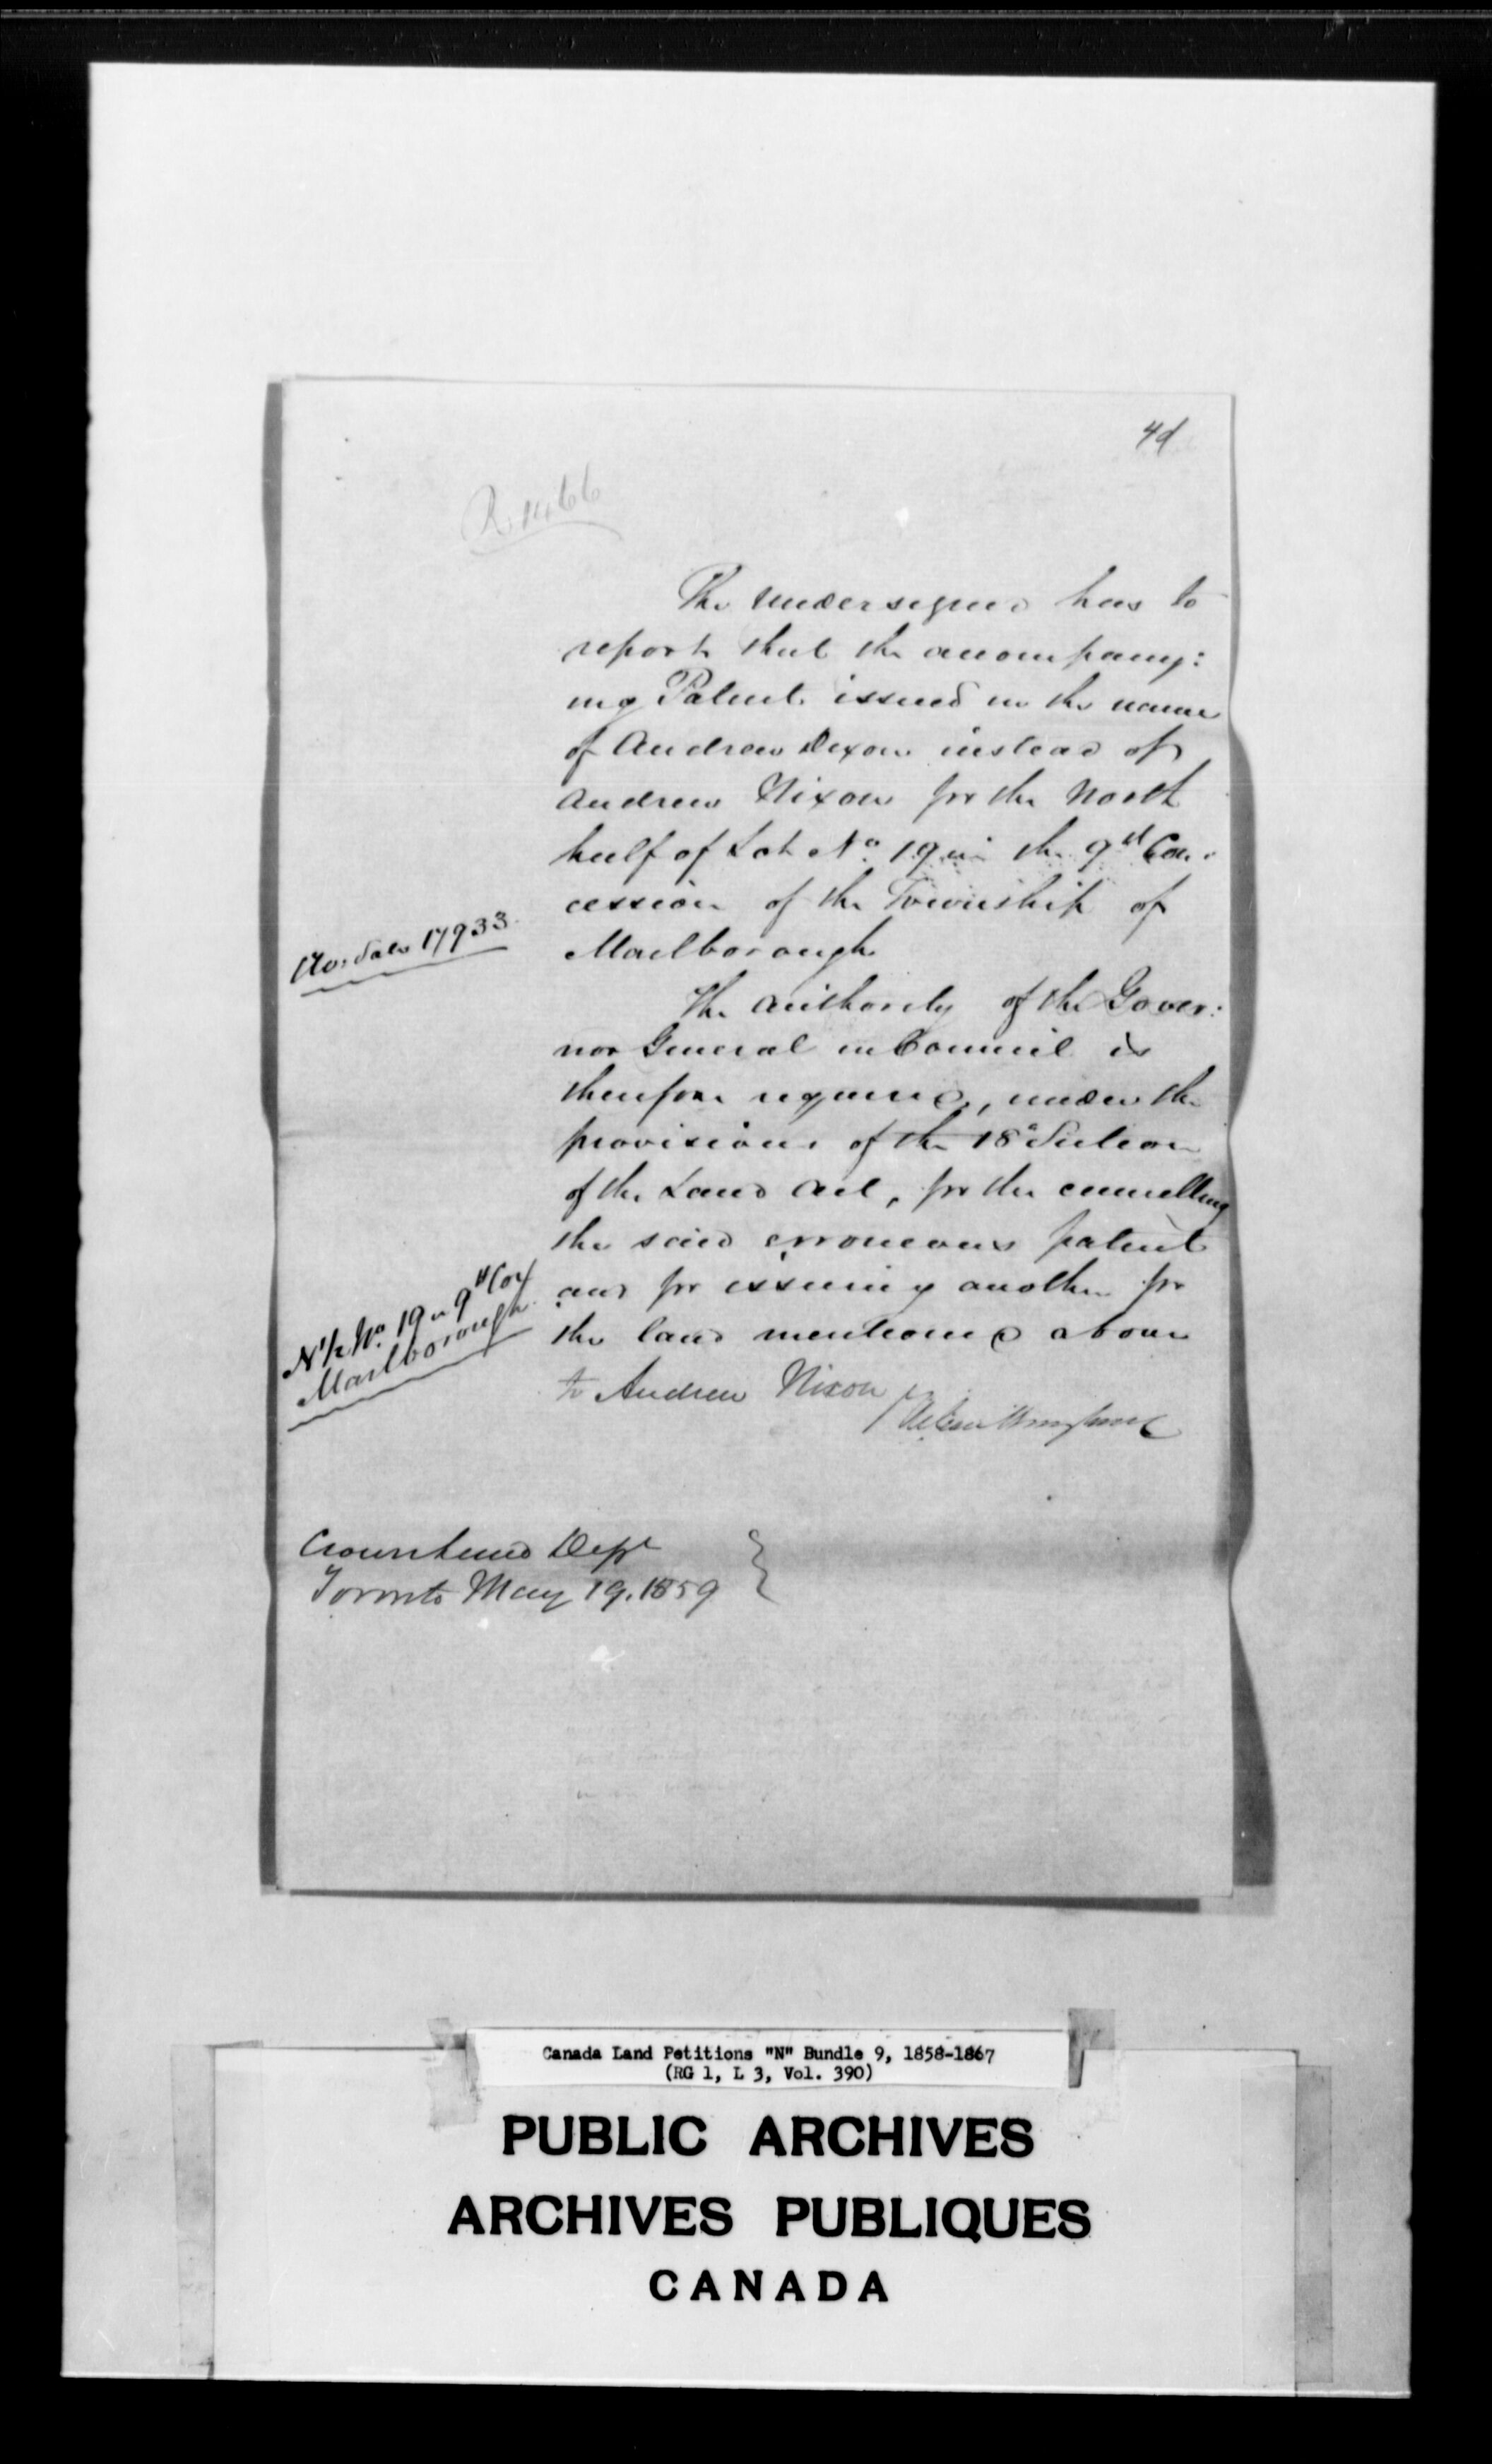 4d
R. 1466
The undersigned has to
report that the accompany:
ing Patent issued in the name
of Andrew Dixon instead of
Andrew Nixon for the North
half of Lot No. 19 in the 9th Con:
cession of the Township of
Marlborough
Sale 17933
The authority of the Gover:
nor General in Council is
therefore required, under the
provisions of the 18th Section
of the Land Act, for the cancelling
the said erroneous patent
and for issuing another for
the land mentioned above
to Andrew Nixon
N 1/2 No. 19 in 9th Con
Marlborough
Crown Lands Dept
Toronto May 19. 1859
Canada Land Petitions "N" Bundle 9, 1858-1867
(RG 1, L 3, Vol. 390)
PUBLIC ARCHIVES
ARCHIVES PUBLIQUES
CANADA